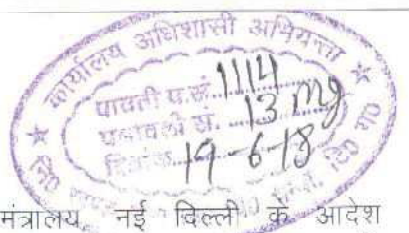 कार्यालय अधिशासी अभियन्ता
पावती प.सं. 1114
पत्रावली सं. 13 mg
दिनांक 19-6-18
मंत्रालय नई दिल्ली के आदेश